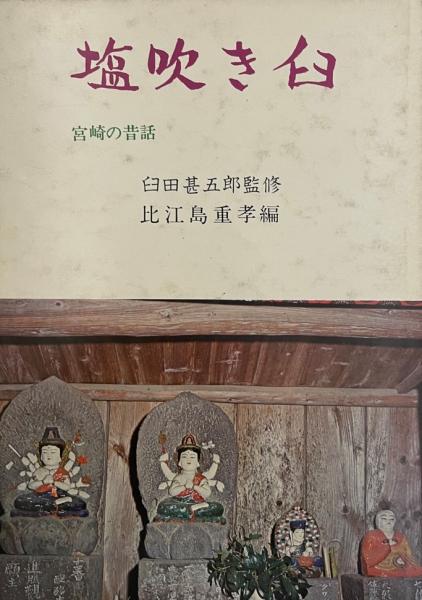 塩吹き臼
宮崎の昔話
臼田甚五郎監修
比江島重孝編